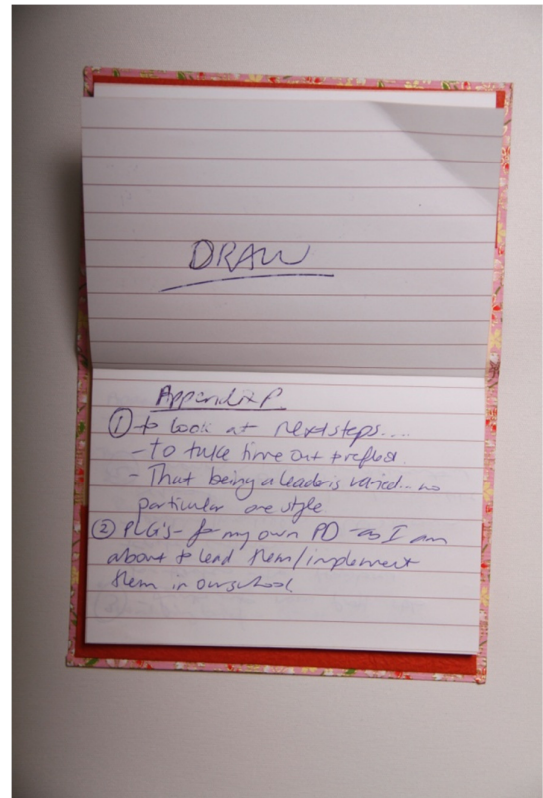 DRAW
Appendix P
① to look at next steps....
- To take time out & reflect.
- That being a leader is varied - no
particular one style
② PLG's - for my own PD - as I am
about to lead them/implement
them in our school